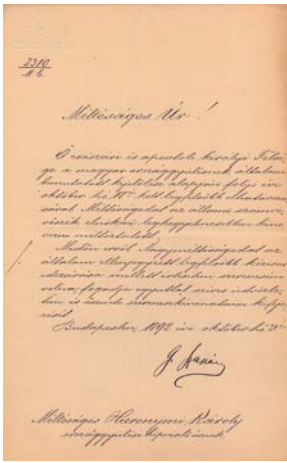 2310
M. E.
Méltóságos Úr!
Ő császári és apostoli királyi Felsé-
ge a magyar országgyűlésnek általam
bemutatott kijelölése alapján folyó évi
október hó 11én kelt legfelsőbb elhatározá-
sával Méltóságodat az állami számve-
vőszék elnökévé legkegyelmesebben kine-
vezni méltóztatott.
Midőn erről Nagyméltóságodat az
általam ellenjegyzett legfelsőbb kézirat
mellett
van szerencsém
fogadja egyúttal szives üdvözle-
tem és őszinte szerencsekivánataim kifeje-
zését.
Budapesten, 1892 évi október hó
Méltóságos Hieronymi Károly
országgyűlési képviselő úrnak